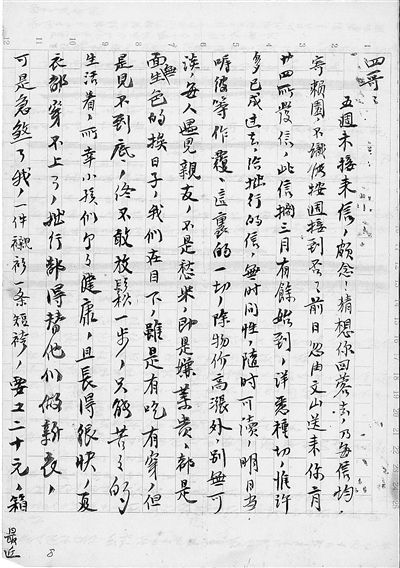 四哥：
五週未接来信，頗念！猜想你回蓉去，乃每信均
寄頤園，不識你按週接到否？前日忽由文山送来你二月
廿四所發信，此信擱三月有餘始到，詳悉種切，惟許
多已成过去，給拙行的信，無时间性，隨时可读，明日当
嘱彼等作覆。這裏的一切，除物价高漲外，别無可
谈，每人遇見親友，不是愁米，即是嫌業贵，都是
面無生色的挨日子，我们在目下，雖是有吃有穿，但
是見不到底，终不敢放鬆一步，只能苦々的
生活着，所幸小孩们都健康，且長得很快，夏
衣都穿不上了，拙行都得替他们做新衣，
可是急煞了我，一件襯衫一条短袴，要工二十元，箱
最近
8